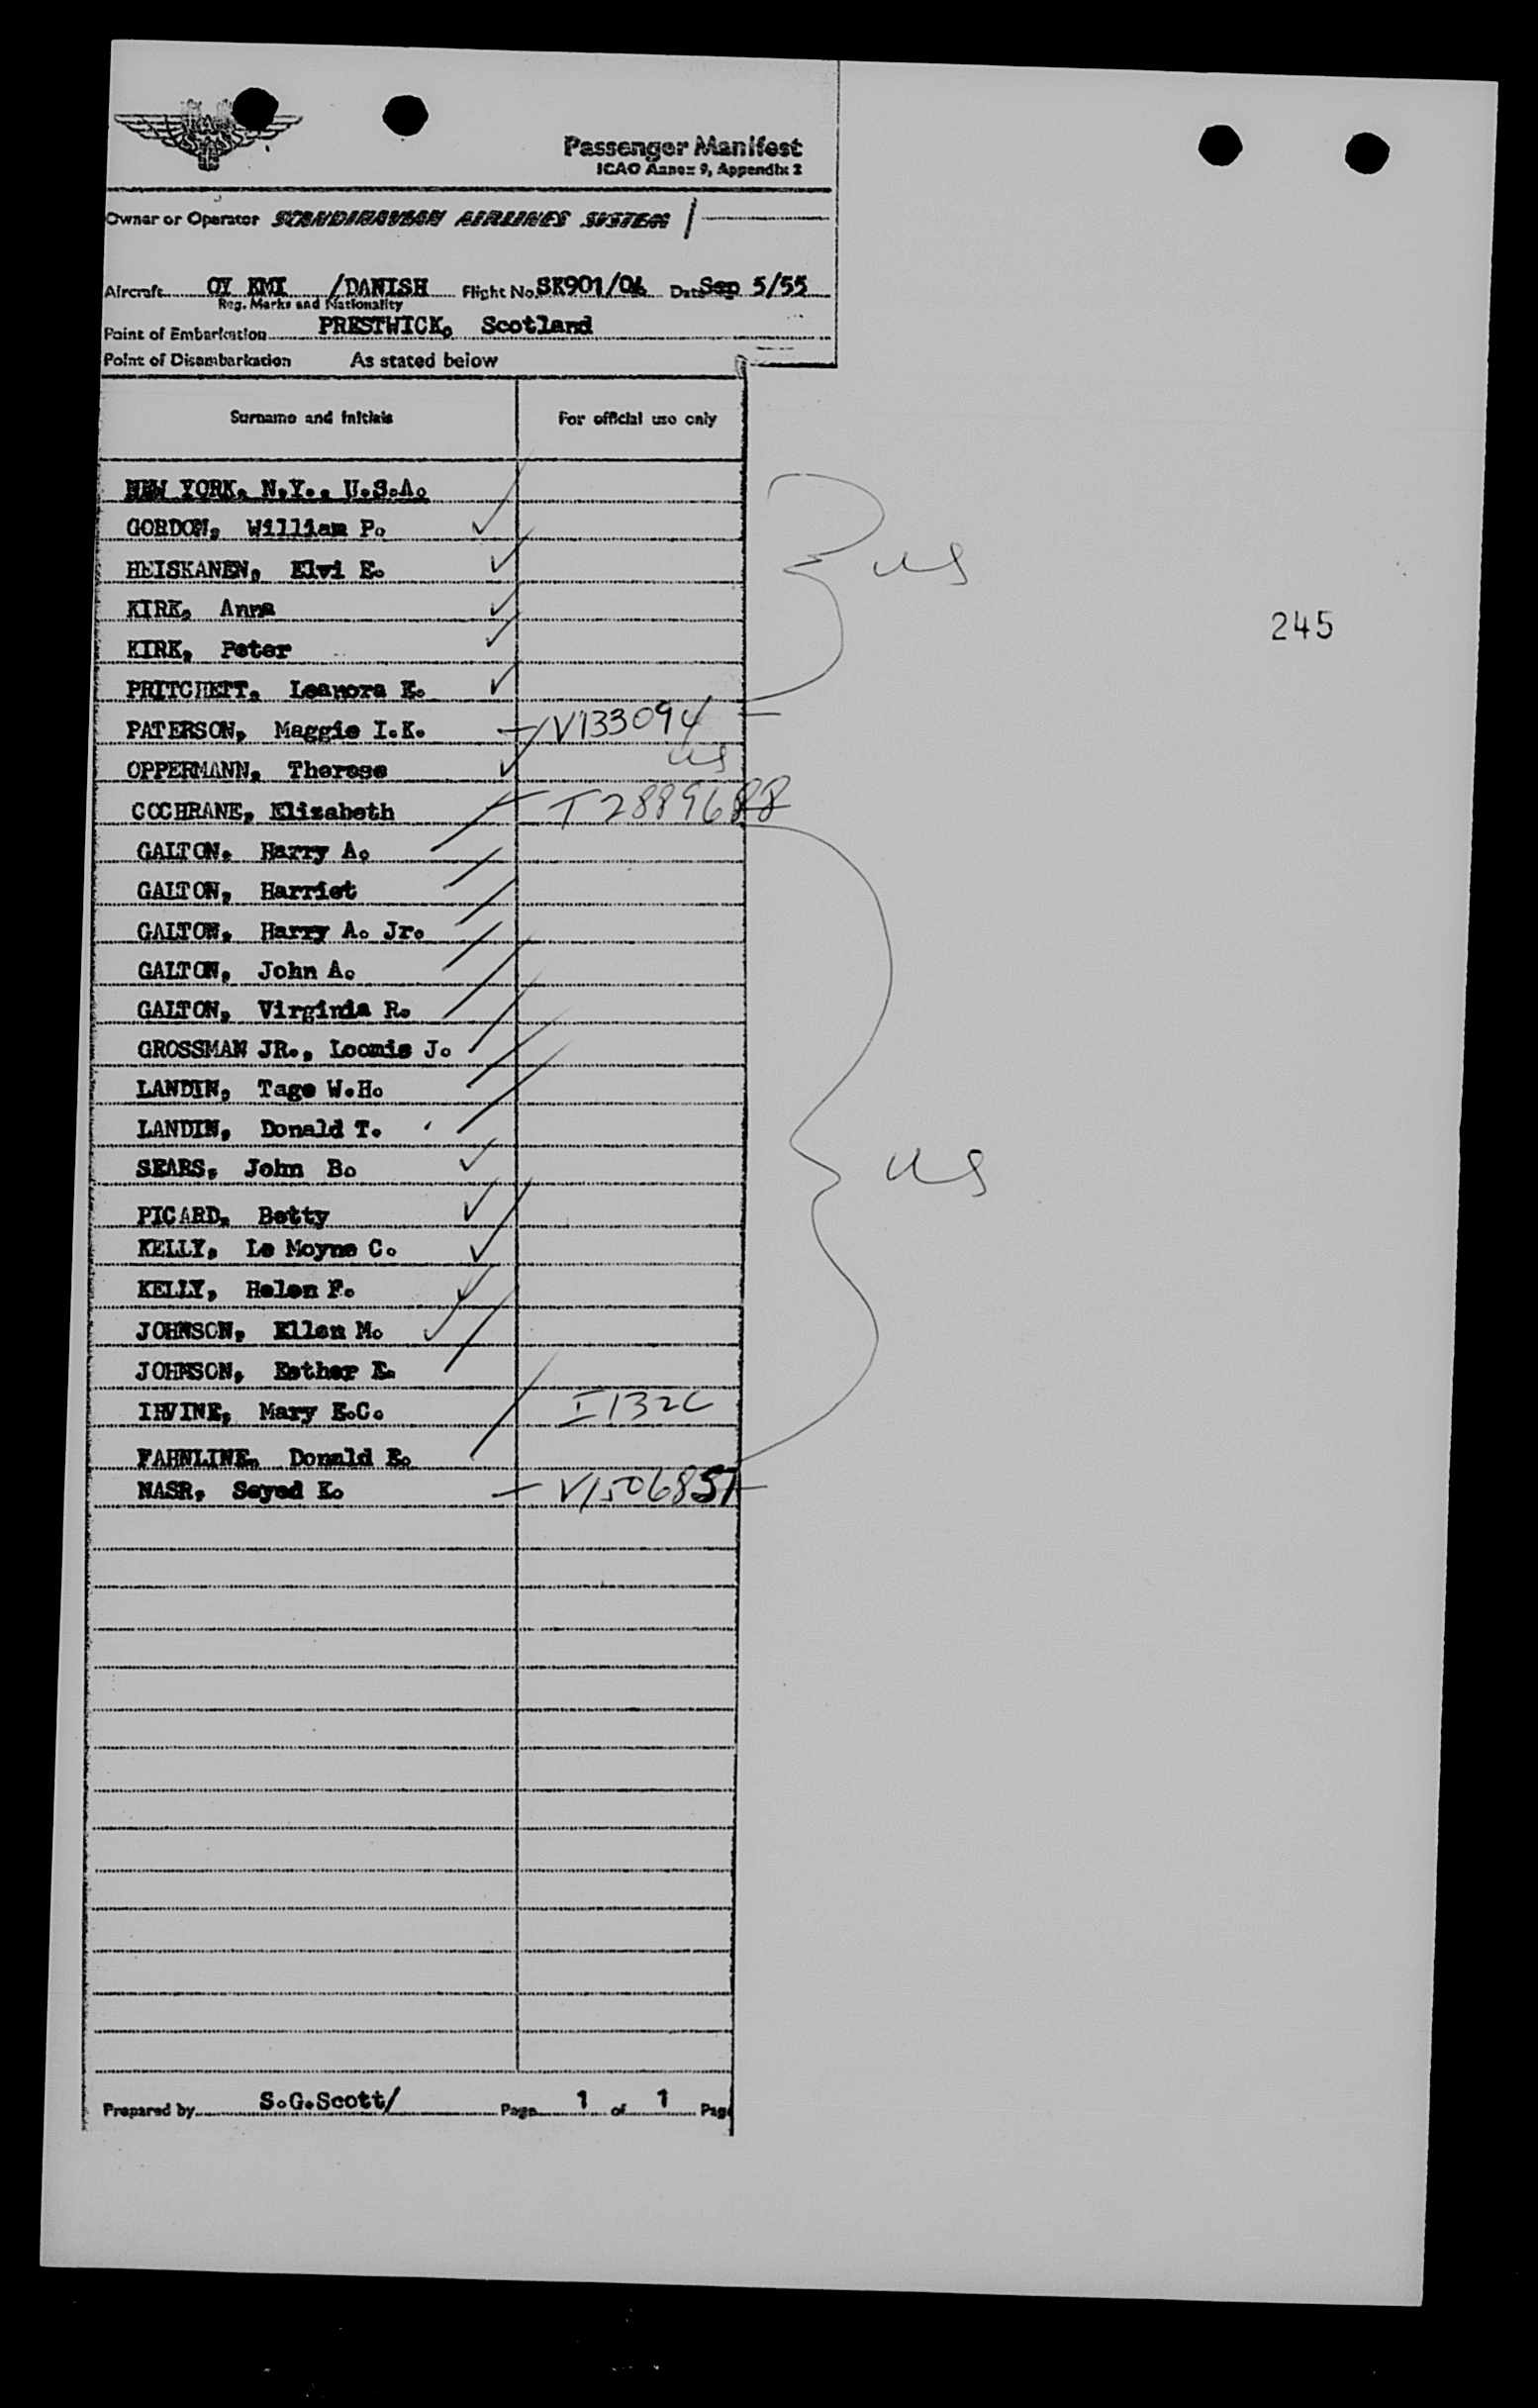 Passenger Manifest
ICAO Annex 9, Appendix 2
Owner or Operator SCANDINAVIAN AIRLINES SYSTEM
Aircraft OY KMI /DANISH Flight No. SK901/04 Date Sep 5/55
Reg. Marks and Nationality
Point of Embarkation PRESTWICK, Scotland
Point of Disembarkation As stated below
Surname and Initials For official use only
NEW YORK, N.Y., U.S.A.
GORDON, William P.
HEISKANEN, Elvi E.
us
KIRK, Anna
245
KIRK, Peter
PRITCHETT, Leanora E.
PATERSON, Maggie I.K. V133094
OPPERMANN, Therese us
COCHRANE, Elizabeth T2889688
GALTON, Harry A.
GALTON, Harriet
GALTON, Harry A. Jr.
GALTON, John A.
GALTON, Virginia R.
GROSSMAN JR., Loomis J.
LANDIN, Tage W.H.
LANDIN, Donald T.
SEARS, John B.
us
PICARD, Betty
KELLY, Le Moyne C.
KELLY, Helen F.
JOHNSON, Ellen M.
JOHNSON, Esther E.
IRVINE, Mary E.C. I132C
FAHNLINE, Donald E.
NASR, Seyed K. V1506851
Prepared by S.G.Scott/ Page 1 of 1 Page